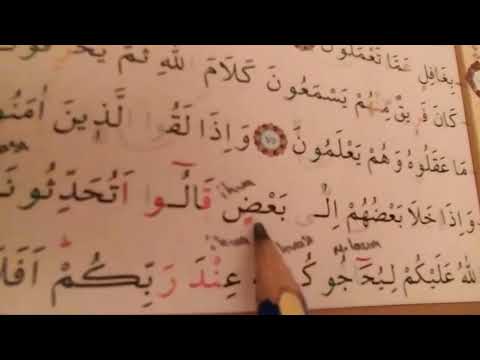 بِغَافِلٍ عَمَّا تَعْمَلُونَ
كَانَ فَرِيقٌ مِنْهُمْ يَسْمَعُونَ كَلَامَ اللّٰهِ ثُمَّ
مَا عَقَلُوهُ وَهُمْ يَعْلَمُونَ ٧٥ وَاِذَا لَقُوا الَّذِينَ اٰمَنُوا
وَاِذَا خَلَا بَعْضُهُمْ اِلٰى بَعْضٍ قَالُٓوا اَتُحَدِّثُونَ
اللّٰهُ عَلَيْكُمْ لِيُحَٓاجُّوكُمْ عِنْدَ رَبِّكُمْ اَفَلَا